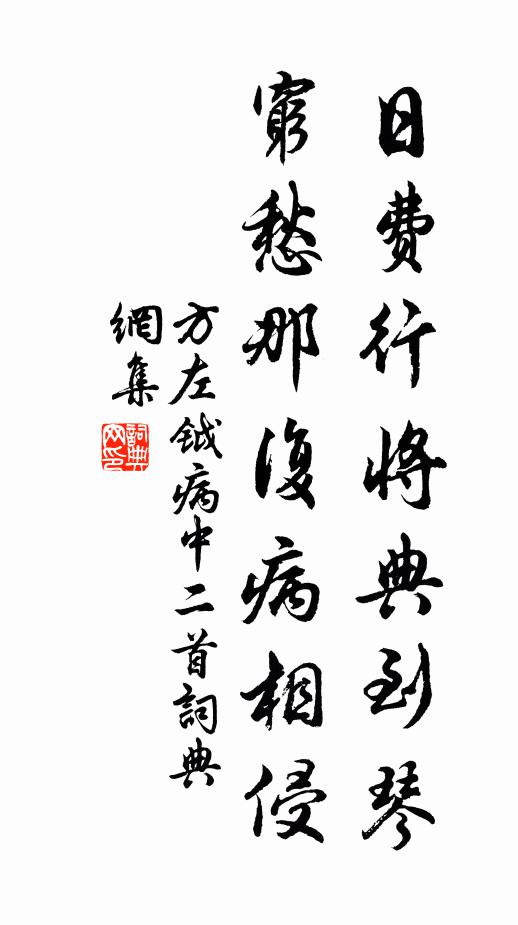 日費行將典到琴
窮愁那復病相侵
方左鉞病中二首詞典
網集
詞典
网印